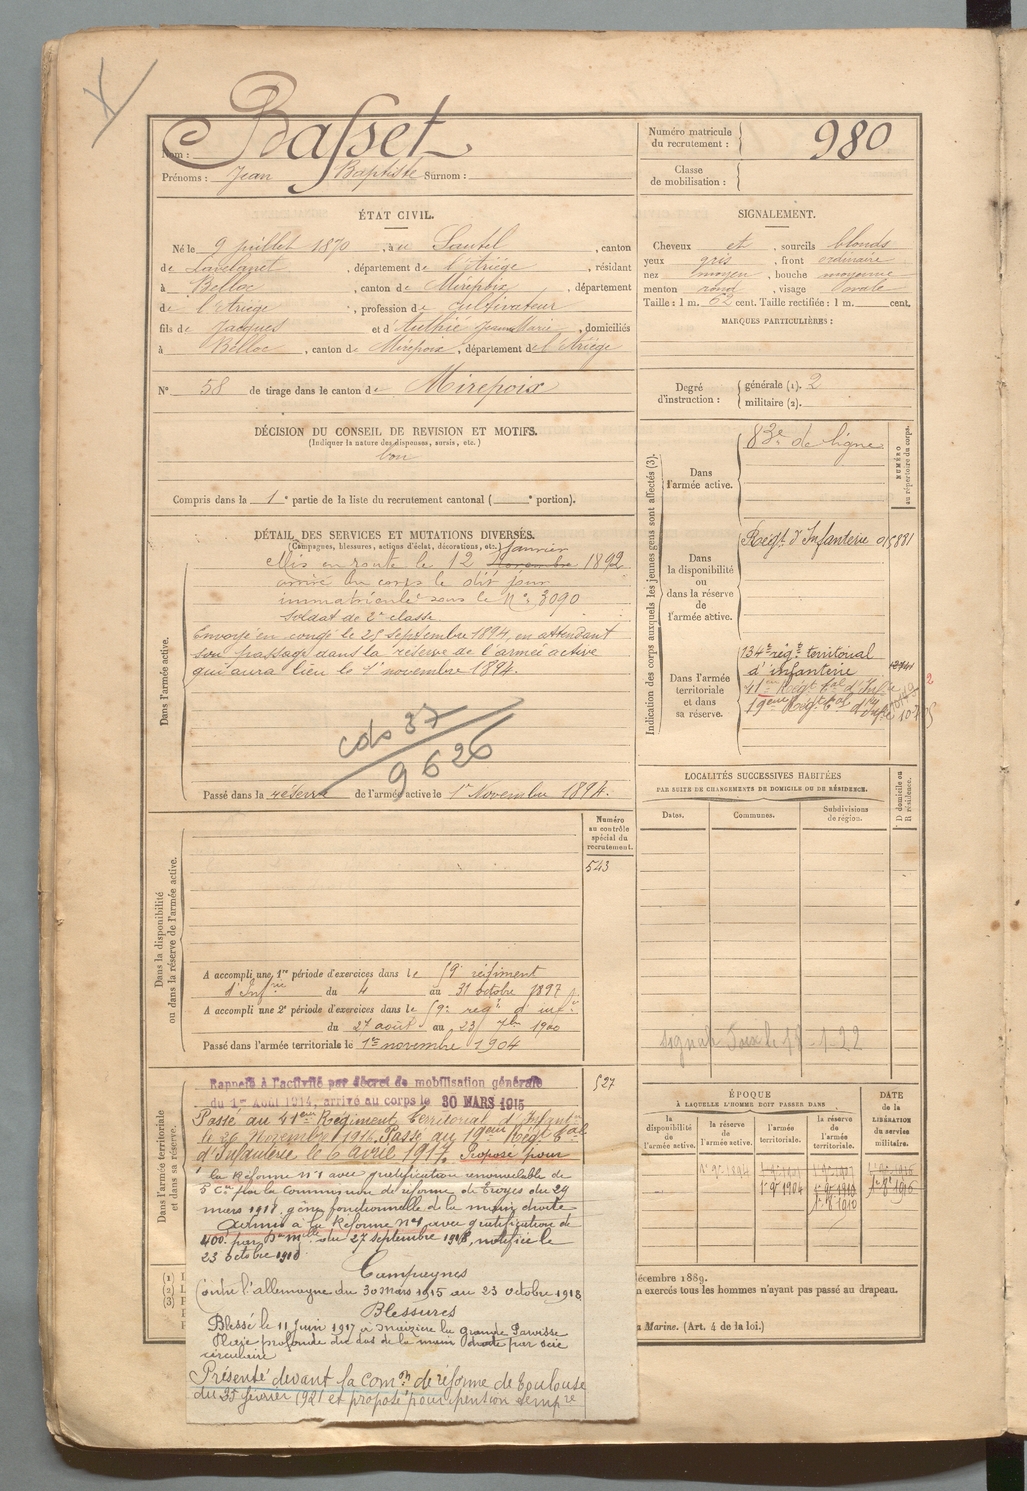 Nom : Basset
Prénoms : Jean Baptiste Surnom :
Numéro matricule du recrutement : 980
Classe de mobilisation :
ÉTAT CIVIL.
Né le 9 juillet 1870, à Sautel, canton
de Lavelanet, département de l'Ariège, résidant
à Belloc, canton de Mirepoix, département
de l'Ariège, profession de cultivateur
fils de Jacques et d'Authié Jeanne Marie, domiciliés
à Belloc, canton de Mirepoix, département de l'Ariège
N° 58 de tirage dans le canton de Mirepoix
DÉCISION DU CONSEIL DE REVISION ET MOTIFS.
(Indiquer la nature des dispenses, sursis, etc.)
bon
Compris dans la 1e partie de la liste du recrutement cantonal ( e portion).
SIGNALEMENT.
Cheveux et, sourcils blonds
yeux gris, front ordinaire
nez moyen, bouche moyenne
menton rond, visage ovale
Taille : 1 m. 62 cent. Taille rectifiée : 1 m. cent.
MARQUES PARTICULIÈRES :
Degré d'instruction : générale (1). 2
militaire (2).
Indication des corps auxquels les jeunes gens sont affectés (3).
NUMÉRO au répertoire du corps.
Dans l'armée active. 83e de ligne
Dans la disponibilité ou dans la réserve de l'armée active. Régt d'Infanterie
Dans l'armée territoriale et dans sa réserve. 134e régt territorial
d'infanterie
41eme Régt tal d'Infie
19eme Régt tal d'Infie
DÉTAIL DES SERVICES ET MUTATIONS DIVERSES.
(Campagnes, blessures, actions d'éclat, décorations, etc.)
Dans l'armée active.
janvier
Mis en route le 12 novembre 1892
arrivé au corps le dit jour
immatriculé sous le N° 3090
soldat de 2e classe.
Envoyé en congé le 25 septembre 1894, en attendant
son passage dans la réserve de l'armée active
qui aura lieu le 1er novembre 1894.
9620
Passé dans la réserve de l'armée active le 1er Novembre 1894.
LOCALITÉS SUCCESSIVES HABITÉES
PAR SUITE DE CHANGEMENTS DE DOMICILE OU DE RÉSIDENCE.
Dates. Communes. Subdivisions de région. D domicile ou R résidence.
Numéro au contrôle spécial du recrutement.
543
Dans la disponibilité ou dans la réserve de l'armée active.
A accompli une 1re période d'exercices dans le 59e régiment
d'Infrie du 4 au 31 octobre 1897
A accompli une 2e période d'exercices dans le 59e régt d'infie
du 27 août au 23 7bre 1900
Passé dans l'armée territoriale le 1er novembre 1904
Dans l'armée territoriale et dans sa réserve.
527
Rappelé à l'activité par décret de mobilisation générale
du 1er Août 1914, arrivé au corps le 30 MARS 1915
Passé au 41eme Régiment Territorial d'Infantrie
le 26 Novembre 1916. Passé au 19eme Régt Tal
d'Infanterie le 6 avril 1917. Proposé pour
la Réforme n° 1 avec gratification renouvelable de
5e Cie par la Commission de réforme de Troyes du 29
mars 1918. gêne fonctionnelle de la main droite
Admis à la Réforme N° 1 avec gratification de
400f par Don mlle du 27 septembre 1918, notifiée le
23 octobre 1918
Campagnes
Contre l'allemagne du 30 mars 1915 au 23 octobre 1918
Blessures
Blessé le 11 juin 1917 à Maizière la Grande Paroisse
Plaie profonde du dos de la main droite par scie
circulaire
Présenté devant la comon de réforme de Toulouse
du février 1921 et proposé pour pension tempre
signalé Foix le 18-1-22
ÉPOQUE
À LAQUELLE L'HOMME DOIT PASSER DANS
la disponibilité de l'armée active. la réserve de l'armée active. l'armée territoriale. la réserve de l'armée territoriale.
DATE de la LIBÉRATION du service militaire.
1er 9bre 1894
1er 9bre 1904
1er 8bre 1910
1er 8bre 1916
(1)
(2)
(3)
décembre 1889.
n exercés tous les hommes n'ayant pas passé au drapeau.
a Marine. (Art. 4 de la loi.)